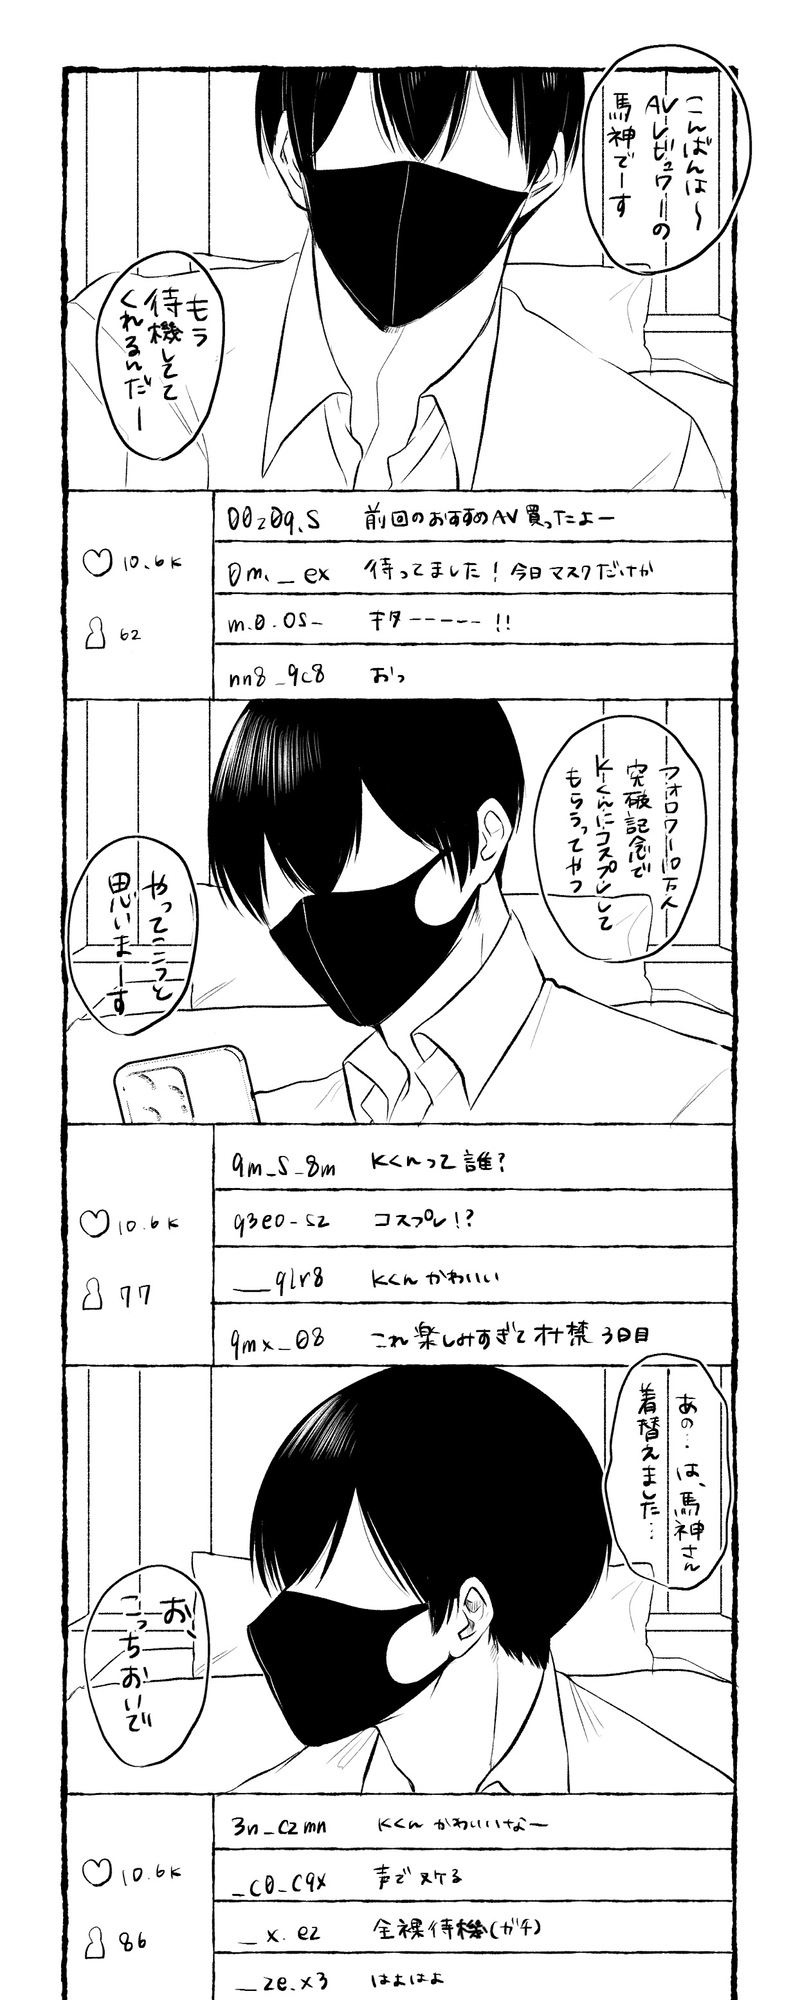 こんばんは〜
AVレビュワーの
馬神でーす
もう
待機してて
くれるんだー
00z0q.S 前回のおすすめAV買ったよー
10.6K
0m._ex 待ってました！今日マスクだけか
m.0.OS_ キター----- !!
62
nn8_9c8 おっ
フォロワー10万人
突破記念で
Kくんにコスプレして
もらうってやつ
やってこうと
思いまーす
9m_S_8m Kくんって誰?
q3e0-sz コスプレ!?
10.6K
__qlr8 Kくんかわいい
77
9mx_08 これ楽しみすぎてオナ禁3日目
あの…は、馬神さん
着替えました…
お、
こっちおいで
3n_czmn Kくんかわいいなー
10.6K
_c0_C9x 声でヌケる
_x.ez 全裸待機(ガチ)
86
_ze.x3 はよはよ